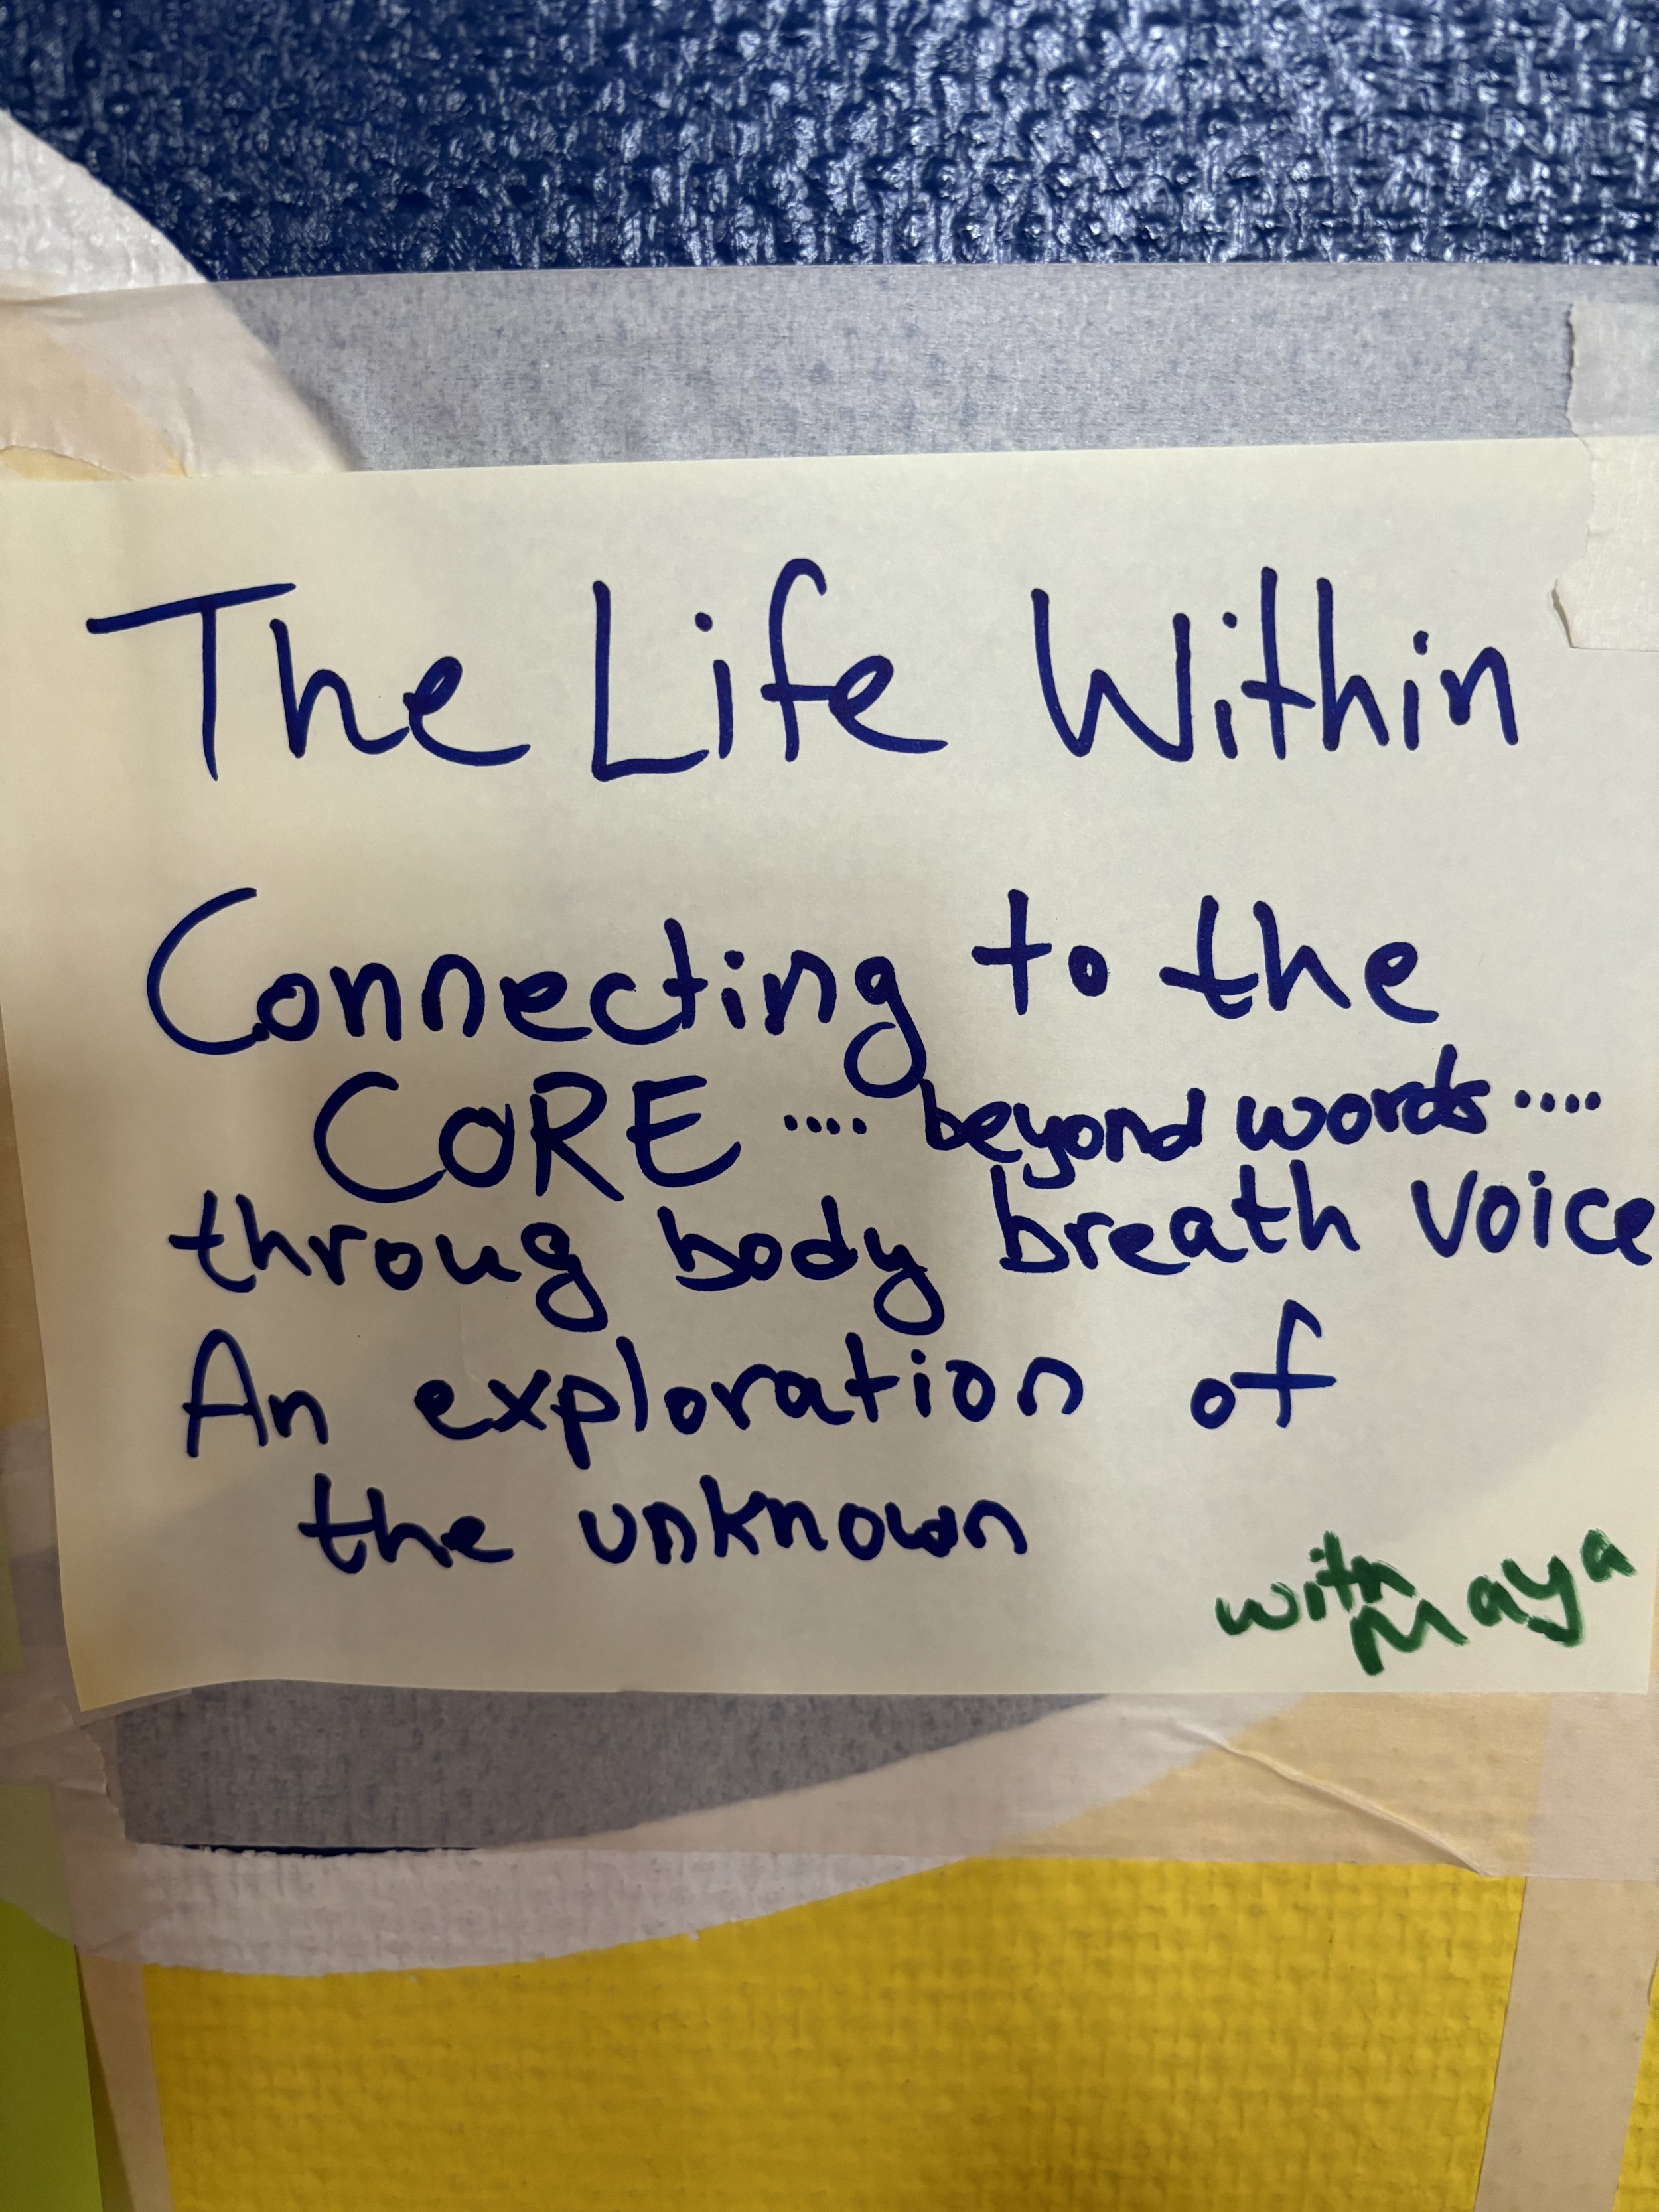 The Life Within
Connecting to the
CORE .... beyond words ....
throug body breath voice
An exploration of
the unknown
with
Maya